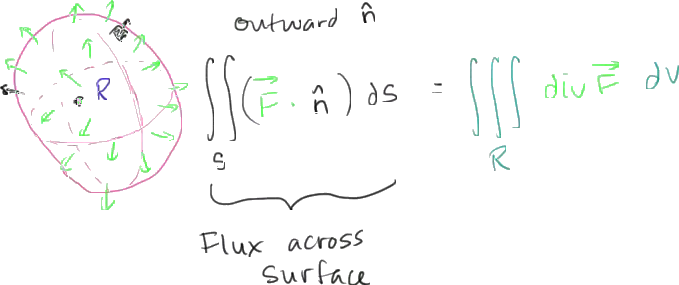 outward n̂
R
∬(F⃗ · n̂) ds = ∭ div F⃗ dV
S
R
Flux across
surface